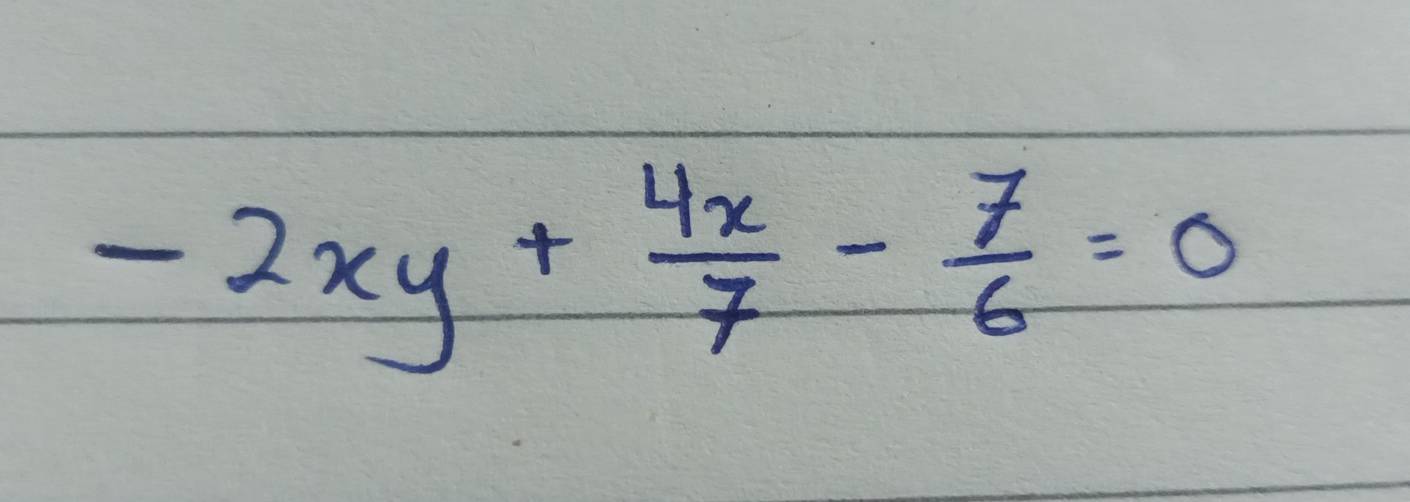 -2xy + 4x/7 - 7/6 = 0